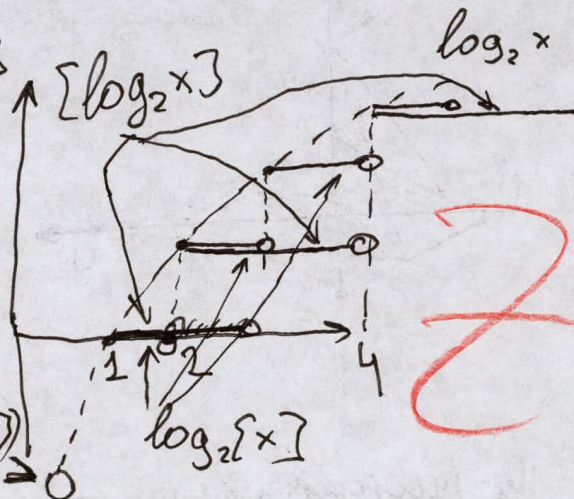 log₂ x
[log₂ x]
1 2 4
log₂[x]